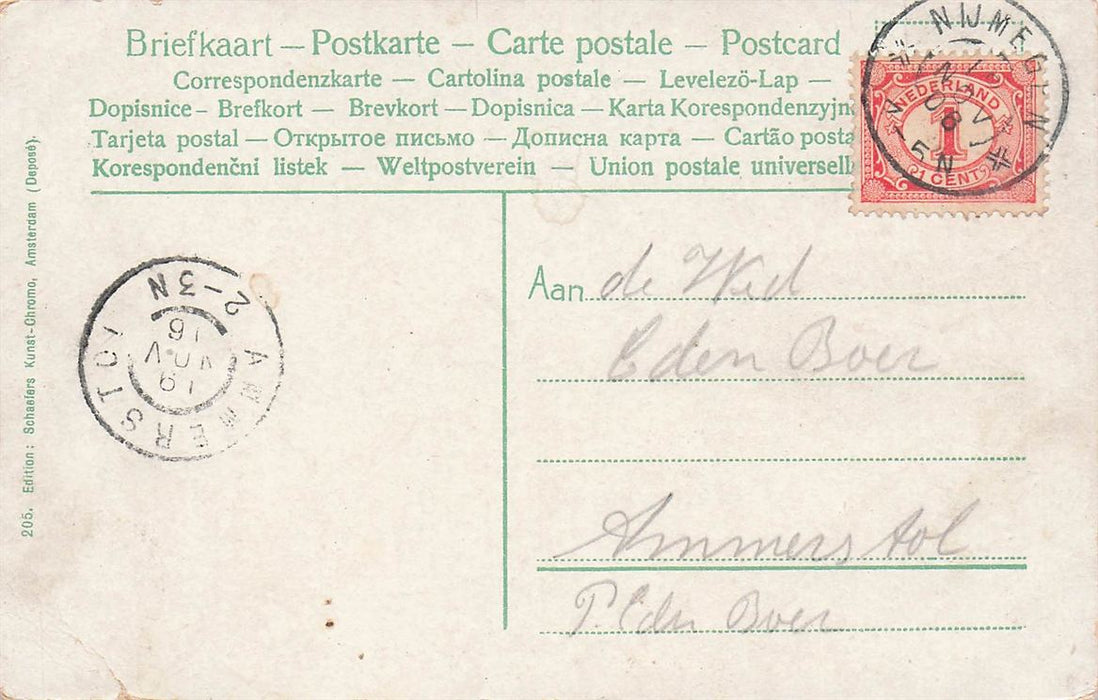 Briefkaart — Postkarte — Carte postale — Postcard
Correspondenzkarte — Cartolina postale — Levelezö-Lap —
Dopisnice - Brefkort — Brevkort — Dopisnica — Karta Korespondenzyjn
Tarjeta postal — Открытое письмо — Дописна карта — Cartão posta
Korespondenční listek — Weltpostverein — Union postale universell
NIJMEGEN
NEDERLAND
1
1 CENT
205. Edition: Schaefers Kunst-Chromo, Amsterdam (Deposé).
AMMERSTOL
19
2-3N
Aan de Wed
C den Boer
Ammerstol
P. C den Boer